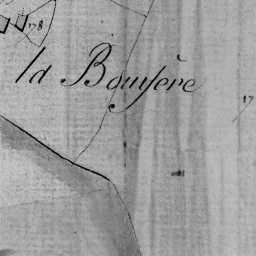 178
la Bouyère
17